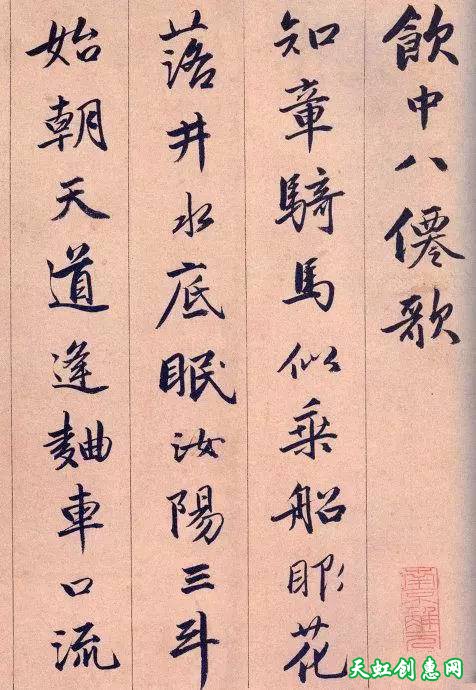 飲中八僊歌
知章騎馬似乗船眼花
落井水底眠汝陽三斗
始朝天道逢麯車口流
天虹创惠网